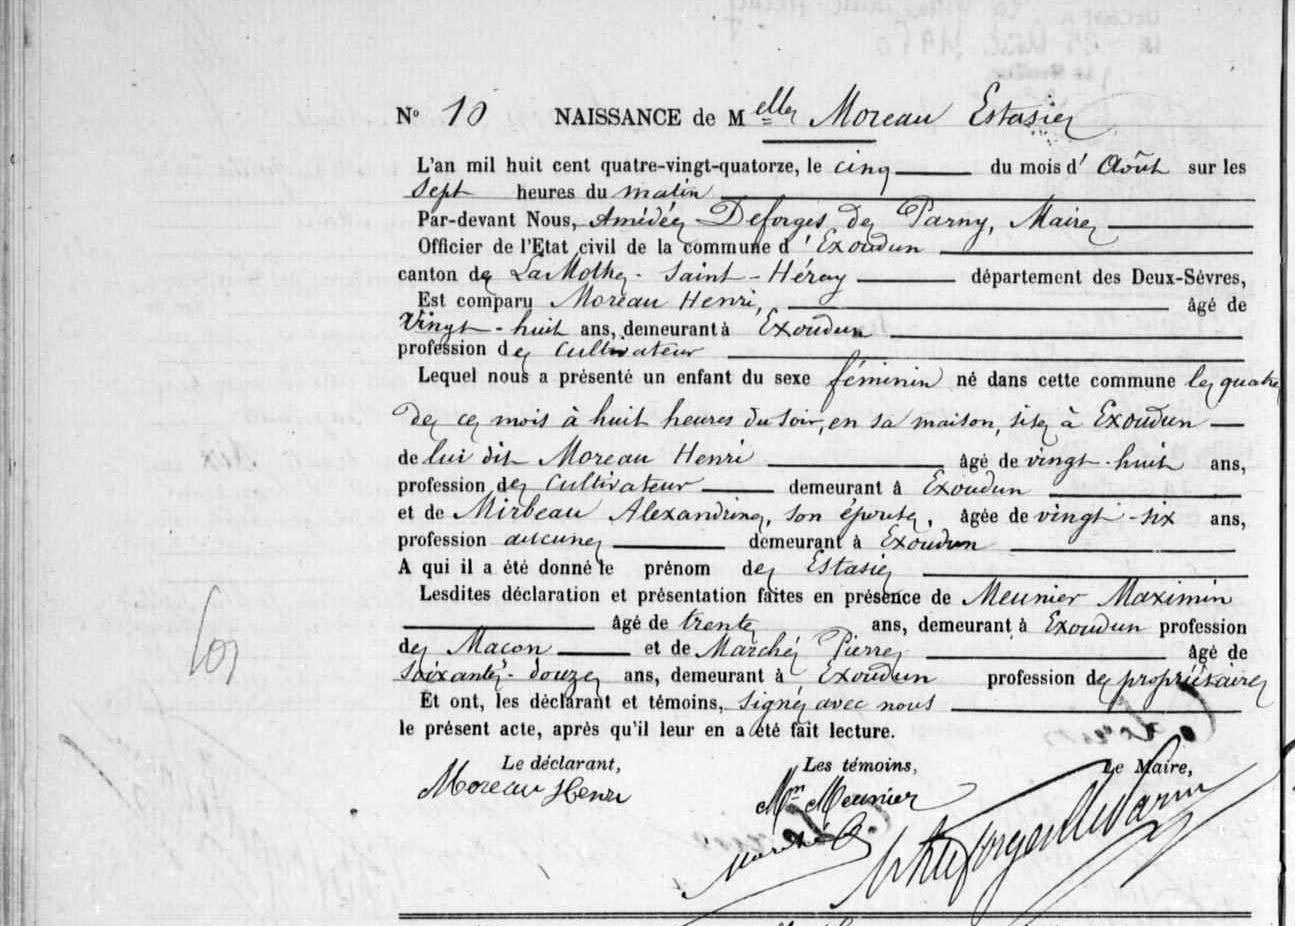 N° 10 NAISSANCE de Melle Moreau Estasie
L'an mil huit cent quatre-vingt-quatorze, le cinq du mois d' Août sur les
sept heures du matin
Par-devant Nous, Amédée Deforges de Parny, Maire
Officier de l'Etat civil de la commune d' Exoudun
canton de La Mothe-Saint-Héray département des Deux-Sèvres,
Est comparu Moreau Henri, âgé de
Vingt-huit ans, demeurant à Exoudun
profession de cultivateur
Lequel nous a présenté un enfant du sexe féminin né dans cette commune le quatre
de ce mois à huit heures du soir, en sa maison, sise à Exoudun
de lui dit Moreau Henri âgé de vingt-huit ans,
profession de cultivateur demeurant à Exoudun
et de Mirbeau Alexandrine, son épouse, âgée de vingt-six ans,
profession aucune demeurant à Exoudun
A qui il a été donné le prénom de Estasie
Lesdites déclaration et présentation faites en présence de Meunier Maximin
âgé de trente ans, demeurant à Exoudun profession
de Macon et de Marché Pierre âgé de
soixante-douze ans, demeurant à Exoudun profession de propriétaire
Et ont, les déclarant et témoins, signé avec nous
le présent acte, après qu'il leur en a été fait lecture.
Le déclarant, Les témoins, Le Maire,
Moreau Henri Min Meunier
Marché